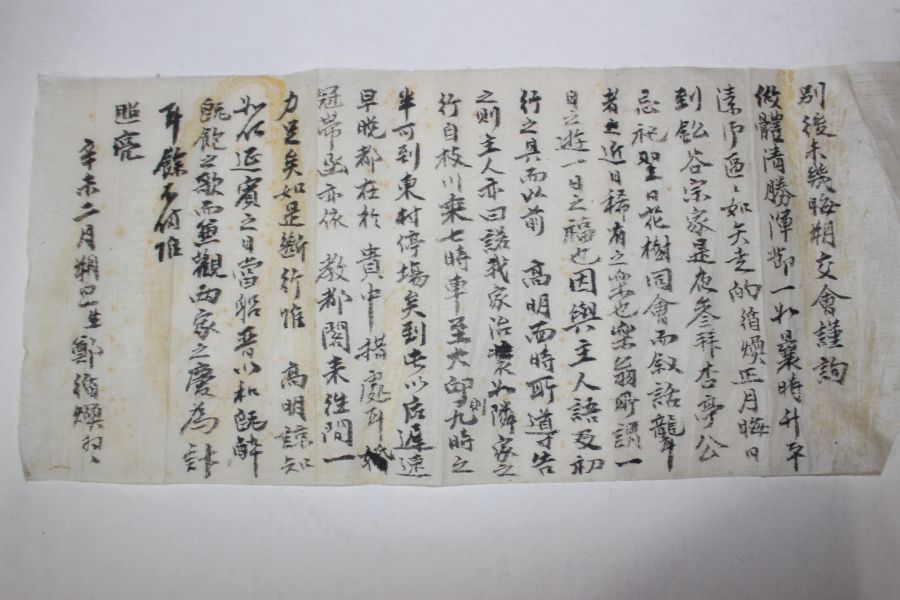 別後未幾晦朔交會謹詢
俊體淸勝渾節一如曩時升平
遠外區〻如矢走的循煥正月晦日
到谷宗家是夜參拜杏亭公
忌祀翌日花樹同會而叙話
者之近日稀有之樂也樂翁所謂一
日之遊一日之福也因與主人語及初
行之具而以前 高明面時所道寸告
之則主人亦曰諾我家治裝如隣家之
行自枝川乘七時車至大邱則九時之
半可到東村停場矣到此以后遲遠
早晩都在於 貴中措處耳婚
冠帶亦依 敎都閣来徃間一
力足矣如是斷行惟 高明諒知
如何延賓之日當以和旣醉
旣飽之歌而兼觀兩家之慶爲計
耳餘不備惟
照亮
辛未二月朔日生鄭循煥